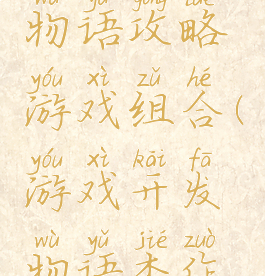 wù yǔ gōng lüè
物语攻略
yóu xì zǔ hé
游戏组合(
yóu xì kāi fā
游戏开发
wù yǔ jié zuò
物语杰作